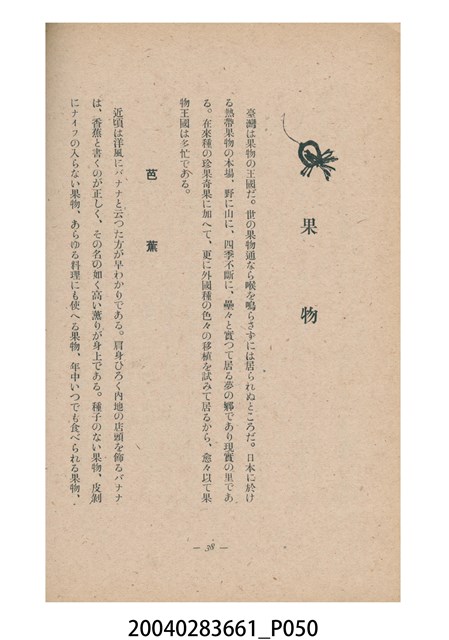 果物
臺灣は果物の王國だ。世の果物通なら喉を鳴らさずには居られぬところだ。日本に於け
る熱帶果物の本場、野に山に、四季不斷に、壘々と實つて居る夢の鄕であり現實の里であ
る。在來種の珍果奇果に加へて、更に外國種の色々の移植を試みて居るから、愈々以て果
物王國は多忙である。
芭蕉
近頃は洋風にバナナと云つた方が早わかりである。肩身ひろく內地の店頭を飾るバナナ
は、香蕉と書くのが正しく、その名の如く高い薰りが身上である。種子のない果物、皮剝
にナイフの入らない果物、あらゆる料理にも使へる果物、年中いつでも食べられる果物、
— 38 —
20040283661_P050